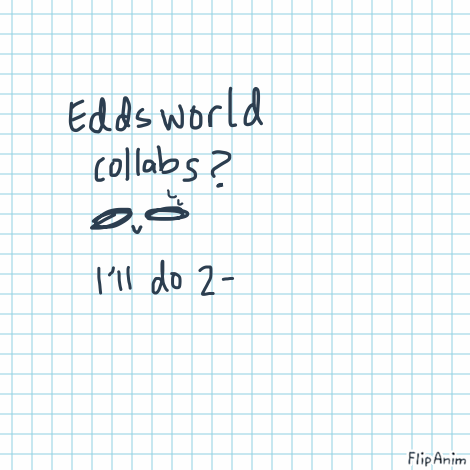 Eddsworld
collabs?
I'll do 2-
FlipAnim